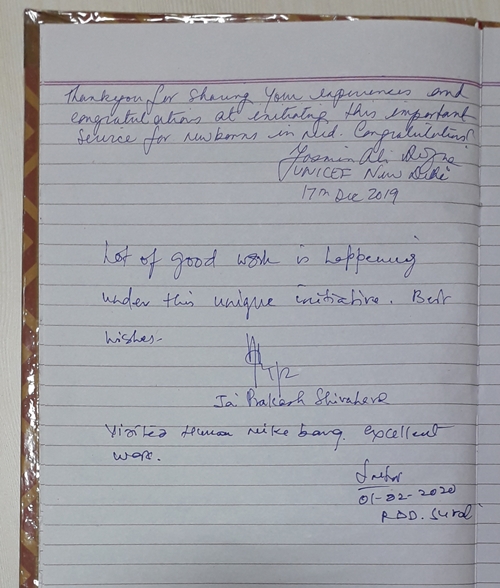 Thankyou for sharing your experiences and
congratulations at initiating this important
service for newborns in need. Congratulations!
Yasmin Ali
UNICEF New Delhi
17th Dec 2019
Lot of good work is happening
under this unique initiative. Best
wishes.
Jai Prakash Shivahere
Visited Human milk bang. excellent
work.
01-02-2020
RDD. Surat